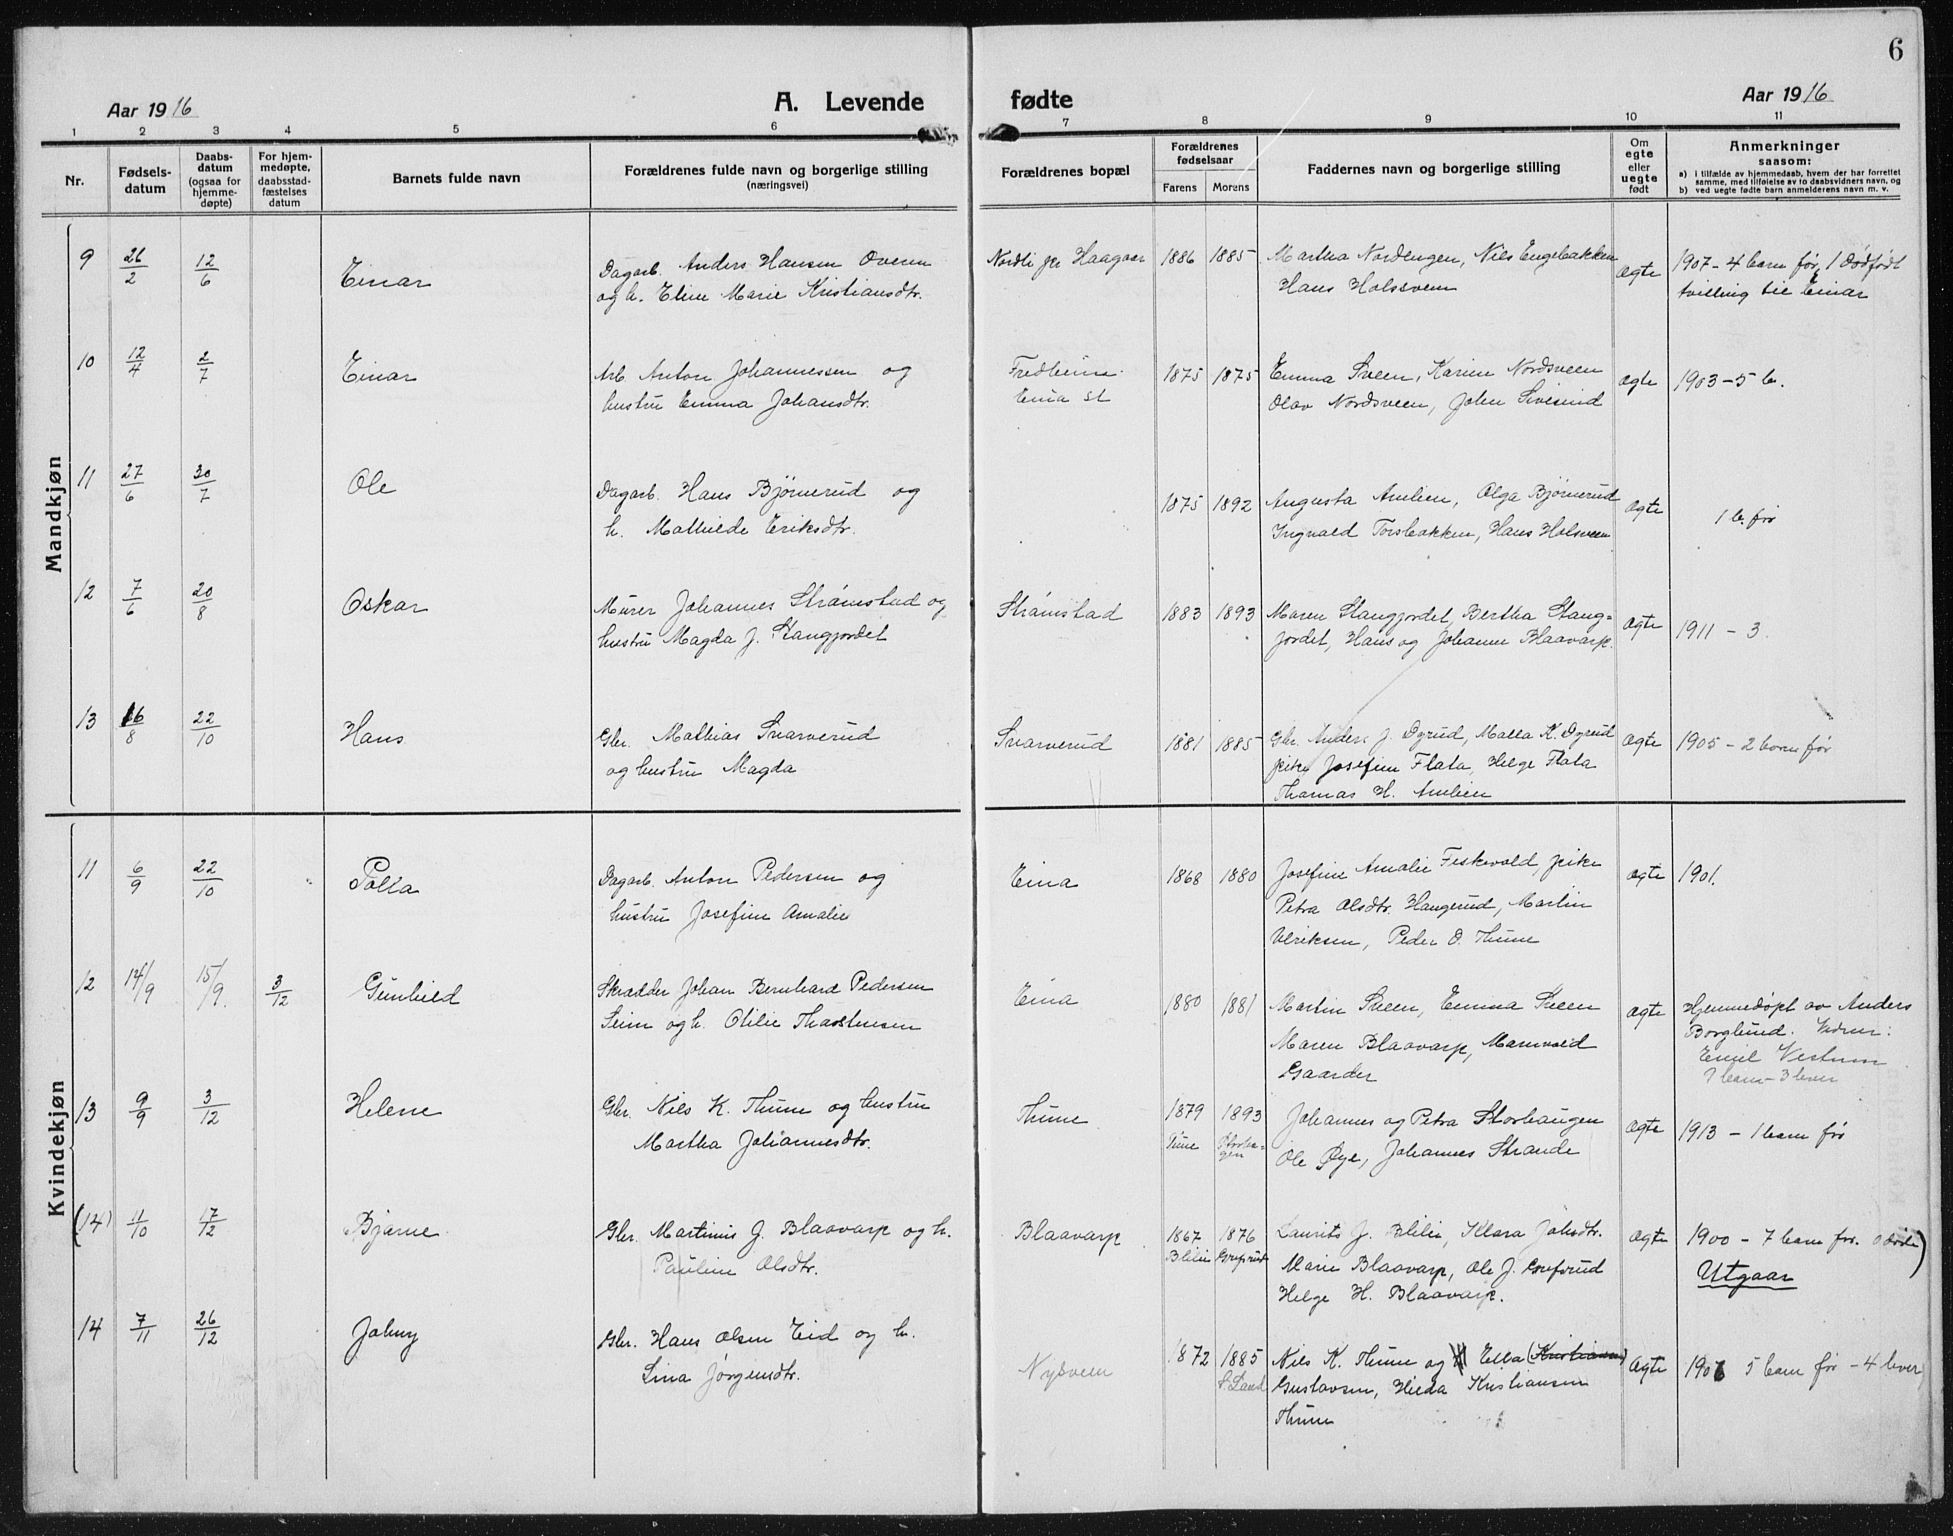 6
Aar 1916
A. Levende fødte
Aar 1916
1 2 3 4 5 6 7 8 9 10 11
Nr.
Fødsels-
datum
Daabs-
datum
(ogsaa for
hjemme-
døpte)
For hjem-
medøpte,
daabsstad-
fæstelses
datum
Barnets fulde navn
Forældrenes fulde navn og borgerlige stilling
(næringsvei)
Forældrenes bopæl
Forældrenes
fødselsaar
Farens Morens
Faddernes navn og borgerlige stilling
Om
egte
eller
uegte
født
Anmerkninger
saasom:
a) i tilfælde av hjemmedaab, hvem der har forrettet
samme, med tilføielse av to daabsvidners navn, og
b) ved uegte fødte barn anmelderens navn m. v.
Mandkjøn
9 26/2 12/6 Einar
Dagarb. Anders Hansen Overen
og h. Eline Marie Kristiansdtr.
Nordli pr Haagaar 1886 1885
Martha Nordengen, Nils Engebakken
Hans Holsveen
ægte
1907 - 4 barn før, 1 dødfødt
tvilling til Einar
10 12/4 2/7 Einar
Arb. Anton Johannessen og
hustru Emma Johansdtr.
Fredheim
Eina st
1875 1875
Emma Sveen, Karine Nordsveen
Olav Nordsveen, John Sivesind
ægte
1903 - 5 b.
11 27/6 30/7 Ole
Dagarb. Hans Bjørnerud og
h. Mathilde Eriksdtr.
1875 1892
Augusta Amlien, Olga Bjørnerud
Ingvald Torsbakken, Hans Holsveen
ægte
1 b. før
12 7/6 20/8 Oskar
Murer Johannes Strømstad og
hustru Magda J. Stangjordet
Strømstad 1883 1893
Maren Stangjordet, Bertha Stang=
jordet, Hans og Johanne Blaavarp.
ægte
1911 - 3
13 16/8 22/10 Hans
Gbr. Mathias Snarverud
og hustru Magda
Snarverud 1881 1885
Gbr. Anders J. Dyrud, Malla K. Dyrud
pike Josefine Flata, Helge Flata
Thomas H. Amlien
ægte
1905 - 2 barn før
Kvindekjøn
11 6/9 22/10 Palla
Dagarb. Anton Pedersen og
hustru Josefine Amalie
Eina 1868 1880
Josefine Amalie Feskevold, pike
Petra Olsdtr. Haugerud, Martin
Ulriksen, Peder O. Thune
ægte
1901.
12 14/9 15/9. 3/12 Gunhild
Skrædder Johan Bernhard Pedersen
Seim og h. Otilie Thorstensen
Eina 1880 1881
Martin Skeen, Emma Skeen
Maren Blaavarp, Marnvald
Gaarder
ægte
Hjemmedøpt av Anders
Borglund. Vidner:
Emil Vestrum
7 barn - 3 lever
13 9/9 3/12 Helene
Gbr. Nils K. Thune og hustru
Martha Johannesdtr.
Thune 1879 1893
Tune Storhau-
gen
Johannes og Petra Storhaugen
Ole Øye, Johannes Strande
ægte
1913 - 1 barn før
(14) 11/10 17/12 Bjarne
Gbr. Martinus J. Blaavarp og h.
Pauline Olsdtr.
Blaavarp 1867 1876
Blilie Grefsrud
Laurits J. Blilie, Klara Johsdtr.
Marie Blaavarp, Ole J. Grefsrud
Helge H. Blaavarp.
ægte
1900 - 7 barn før. 0 døde)
Utgaar
14 7/11 26/12 Johny
Gbr. Hans Olsen Eid og h.
Lina Jørgensdtr.
Nysveen 1872 1885
S. Land
Nils K. Thune og Ella (Kristiansen)
Gustavsen, Hilda Kristiansen
Thune
ægte
1906 5 barn før - 4 lever